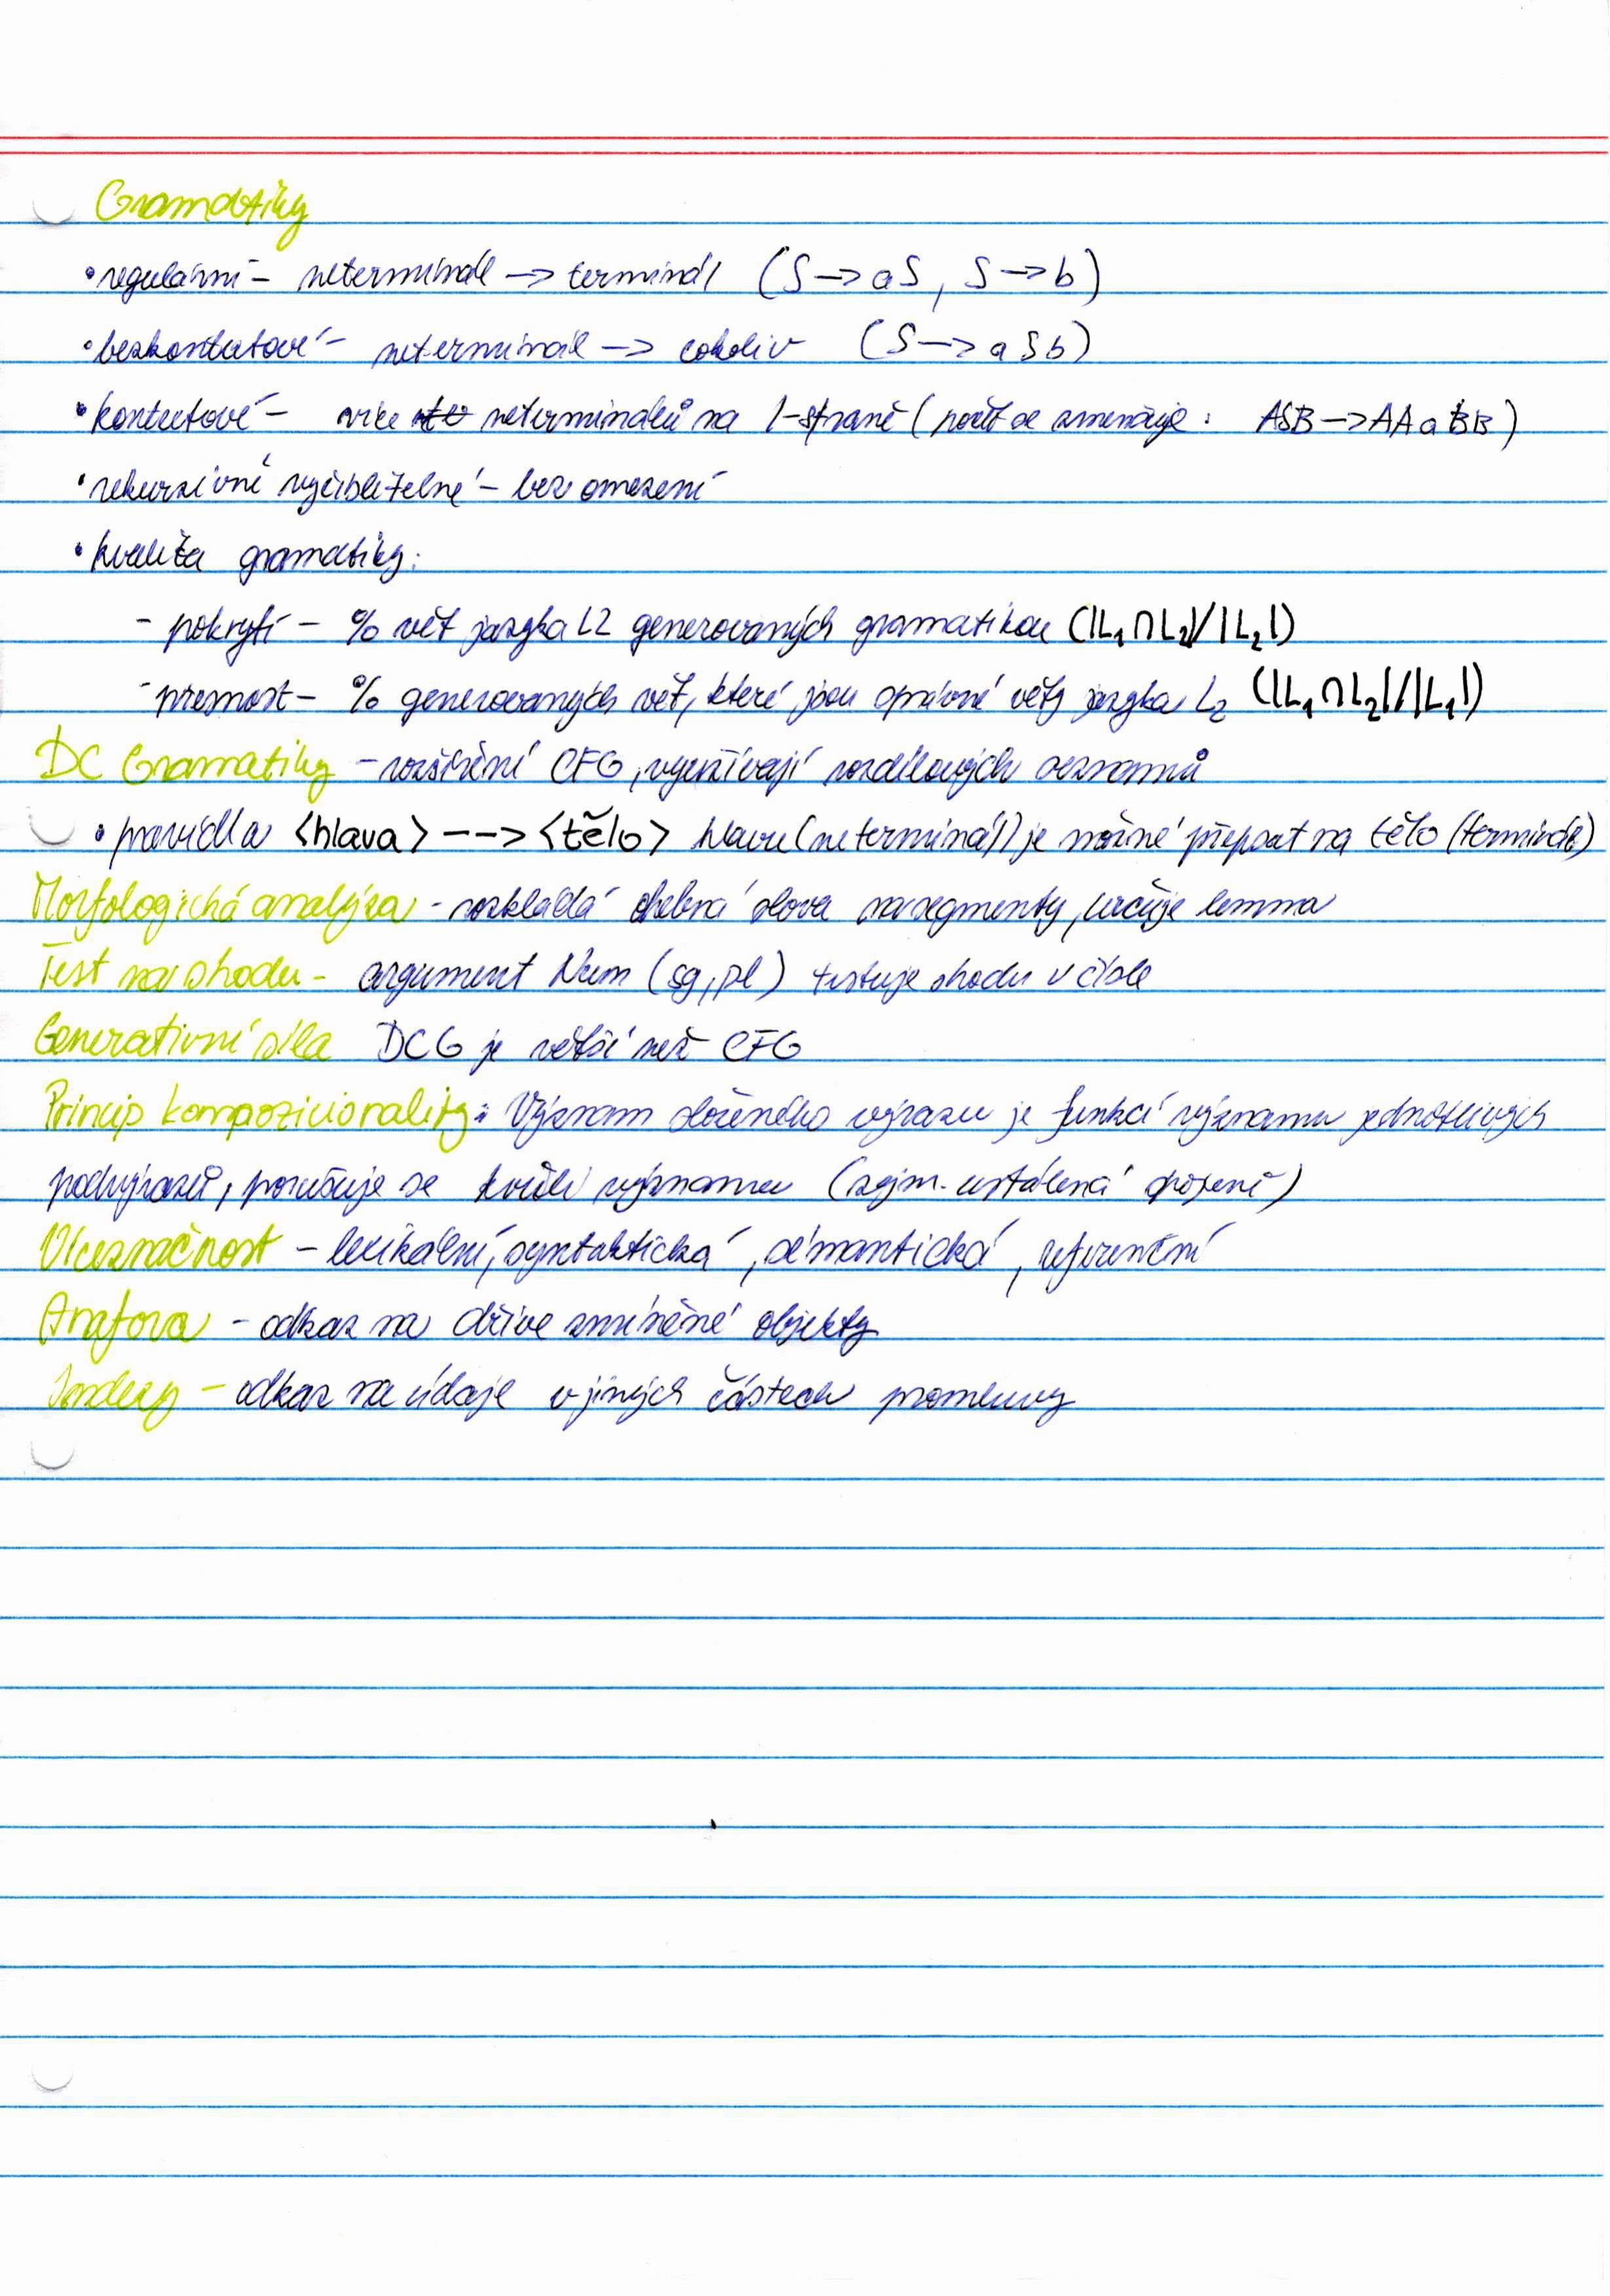 Gramatiky
• regulární – neterminál -> terminál (S -> aS, S -> b)
• bezkontextové – neterminál -> cokoliv (S -> aSb)
• kontextové – více neterminálů na l-straně (počet se zmenšuje: ASB -> AAaBB)
• rekurzivně vyčíslitelné – bez omezení
• kvalita gramatiky:
- pokrytí – % vět jazyka L2 generovaných gramatikou (|L₁∩L₂|/|L₂|)
- přesnost – % generovaných vět, které jsou správné věty jazyka L₂ (|L₁∩L₂|/|L₁|)
DC Gramatiky – rozšíření CFG, využívají rozdílových seznamů
• pravidla <hlava> --> <tělo> hlavu (neterminál) je možné přepsat na tělo (terminál)
Morfologická analýza – rozkládá slova na segmenty, určuje lemma
Test na shodu – argument Num (sg, pl) testuje shodu v čísle
Generativní síla DCG je větší než CFG
Princip kompozicionality: Význam složeného výrazu je funkcí významu jednotlivých
podvýrazů, porušuje se kvůli významu (zejm. ustálená spojení)
Víceznačnost – lexikální, syntaktická, sémantická, referenční
Anafora – odkaz na dříve zmíněné objekty
Indexy – odkaz na údaje v jiných částech promluvy